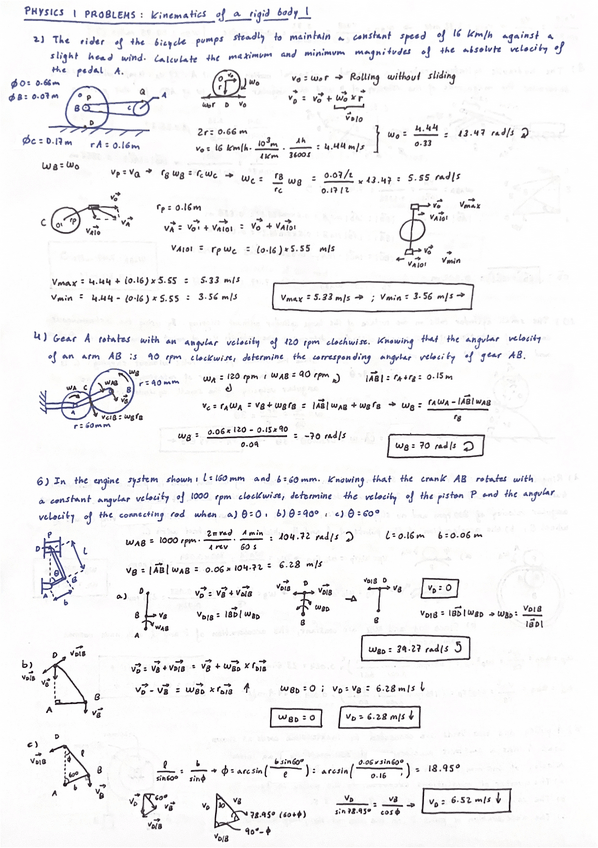 PHYSICS 1 PROBLEMS: Kinematics of a rigid body 1
2) The rider of the bicycle pumps steadily to maintain a constant speed of 16 Km/h against a
slight head wind. Calculate the maximum and minimum magnitudes of the absolute velocity of
the pedal A.
ØO = 0.66m
ØB = 0.07m
O P B Q A C D
r v₀ ω₀r D v₀
v₀ = ω₀r → Rolling without sliding
v⃗_D = v⃗₀ + ω⃗₀ × r⃗
v⃗_D/O
ØC = 0.17m rA = 0.16m
2r = 0.66 m
v₀ = 16 Km/h · 10³m/1Km · 1h/3600s = 4.44 m/s } ω₀ = 4.44/0.33 = 13.47 rad/s ↻
ω_B = ω₀
v_P = v_Q → r_B ω_B = r_C ω_C → ω_C = r_B/r_C ω_B = (0.07/2)/(0.17/2) × 13.47 = 5.55 rad/s
C O' r_P v⃗₀ v⃗_A v⃗_A/O'
r_P = 0.16m
v⃗_A = v⃗_O' + v⃗_A/O' = v⃗₀ + v⃗_A/O'
v_A/O' = r_P ω_C = (0.16) × 5.55 m/s
v⃗₀ v⃗_max
v⃗_A/O'
v⃗₀
v⃗_A/O' v⃗_min
Vmax = 4.44 + (0.16) × 5.55 = 5.33 m/s
Vmin = 4.44 - (0.16) × 5.55 = 3.56 m/s
Vmax = 5.33 m/s → ; Vmin = 3.56 m/s →
4) Gear A rotates with an angular velocity of 120 rpm clockwise. Knowing that the angular velocity
of an arm AB is 90 rpm clockwise, determine the corresponding angular velocity of gear AB.
ω_A C ω_AB ω_B B v⃗_B A
r = 90mm
v_C/B = ω_B r_B
r = 60mm
ω_A = 120 rpm ; ω_AB = 90 rpm ↻ |A⃗B| = r_A + r_B = 0.15m
v_C = r_A ω_A = v_B + ω_B r_B = |A⃗B| ω_AB + ω_B r_B → ω_B = (r_A ω_A - |A⃗B| ω_AB)/r_B
ω_B = (0.06 × 120 - 0.15 × 90)/0.09 = -70 rad/s
ω_B = 70 rad/s ↻
6) In the engine system shown, l = 160mm and b = 60mm. Knowing that the crank AB rotates with
a constant angular velocity of 1000 rpm clockwise, determine the velocity of the piston P and the angular
velocity of the connecting rod when a) θ = 0, b) θ = 90°, c) θ = 60°
P D l θ B A b
ω_AB = 1000 rpm · 2π rad/1 rev · 1 min/60 s = 104.72 rad/s ↻ l = 0.16m b = 0.06m
v_B = |A⃗B| ω_AB = 0.06 × 104.72 = 6.28 m/s
a) D B v⃗_B A ω_AB
v⃗_D = v⃗_B + v⃗_D/B
v_D/B = |B⃗D| ω_BD
v_D/B D ω_BD B
v_D/B D v_B
v_D = 0
v_D/B = |B⃗D| ω_BD → ω_BD = v_D/B / |B⃗D|
ω_BD = 39.27 rad/s ↺
b)
D v⃗_D/B v⃗_B A B v⃗_B
v⃗_D = v⃗_B + v⃗_D/B = v⃗_B + ω⃗_BD × r⃗_D/B
v⃗_D - v⃗_B = ω⃗_BD × r⃗_D/B ↑ ω_BD = 0 ; v_D = v_B = 6.28 m/s ↓
ω_BD = 0 v_D = 6.28 m/s ↓
c)
D v⃗_D/B ϕ l 60° A b B v⃗_B
l/sin60° = b/sinϕ → ϕ = arcsin(b sin60°/l) : arcsin(0.06 × sin60°/0.16) = 18.95°
60° v⃗_B v⃗_D/B
v_D 30 v_B 78.95° (60+ϕ)
90° - ϕ
v_D/B
v_D/sin78.95° = v_B/cosϕ → v_D = 6.52 m/s ↓